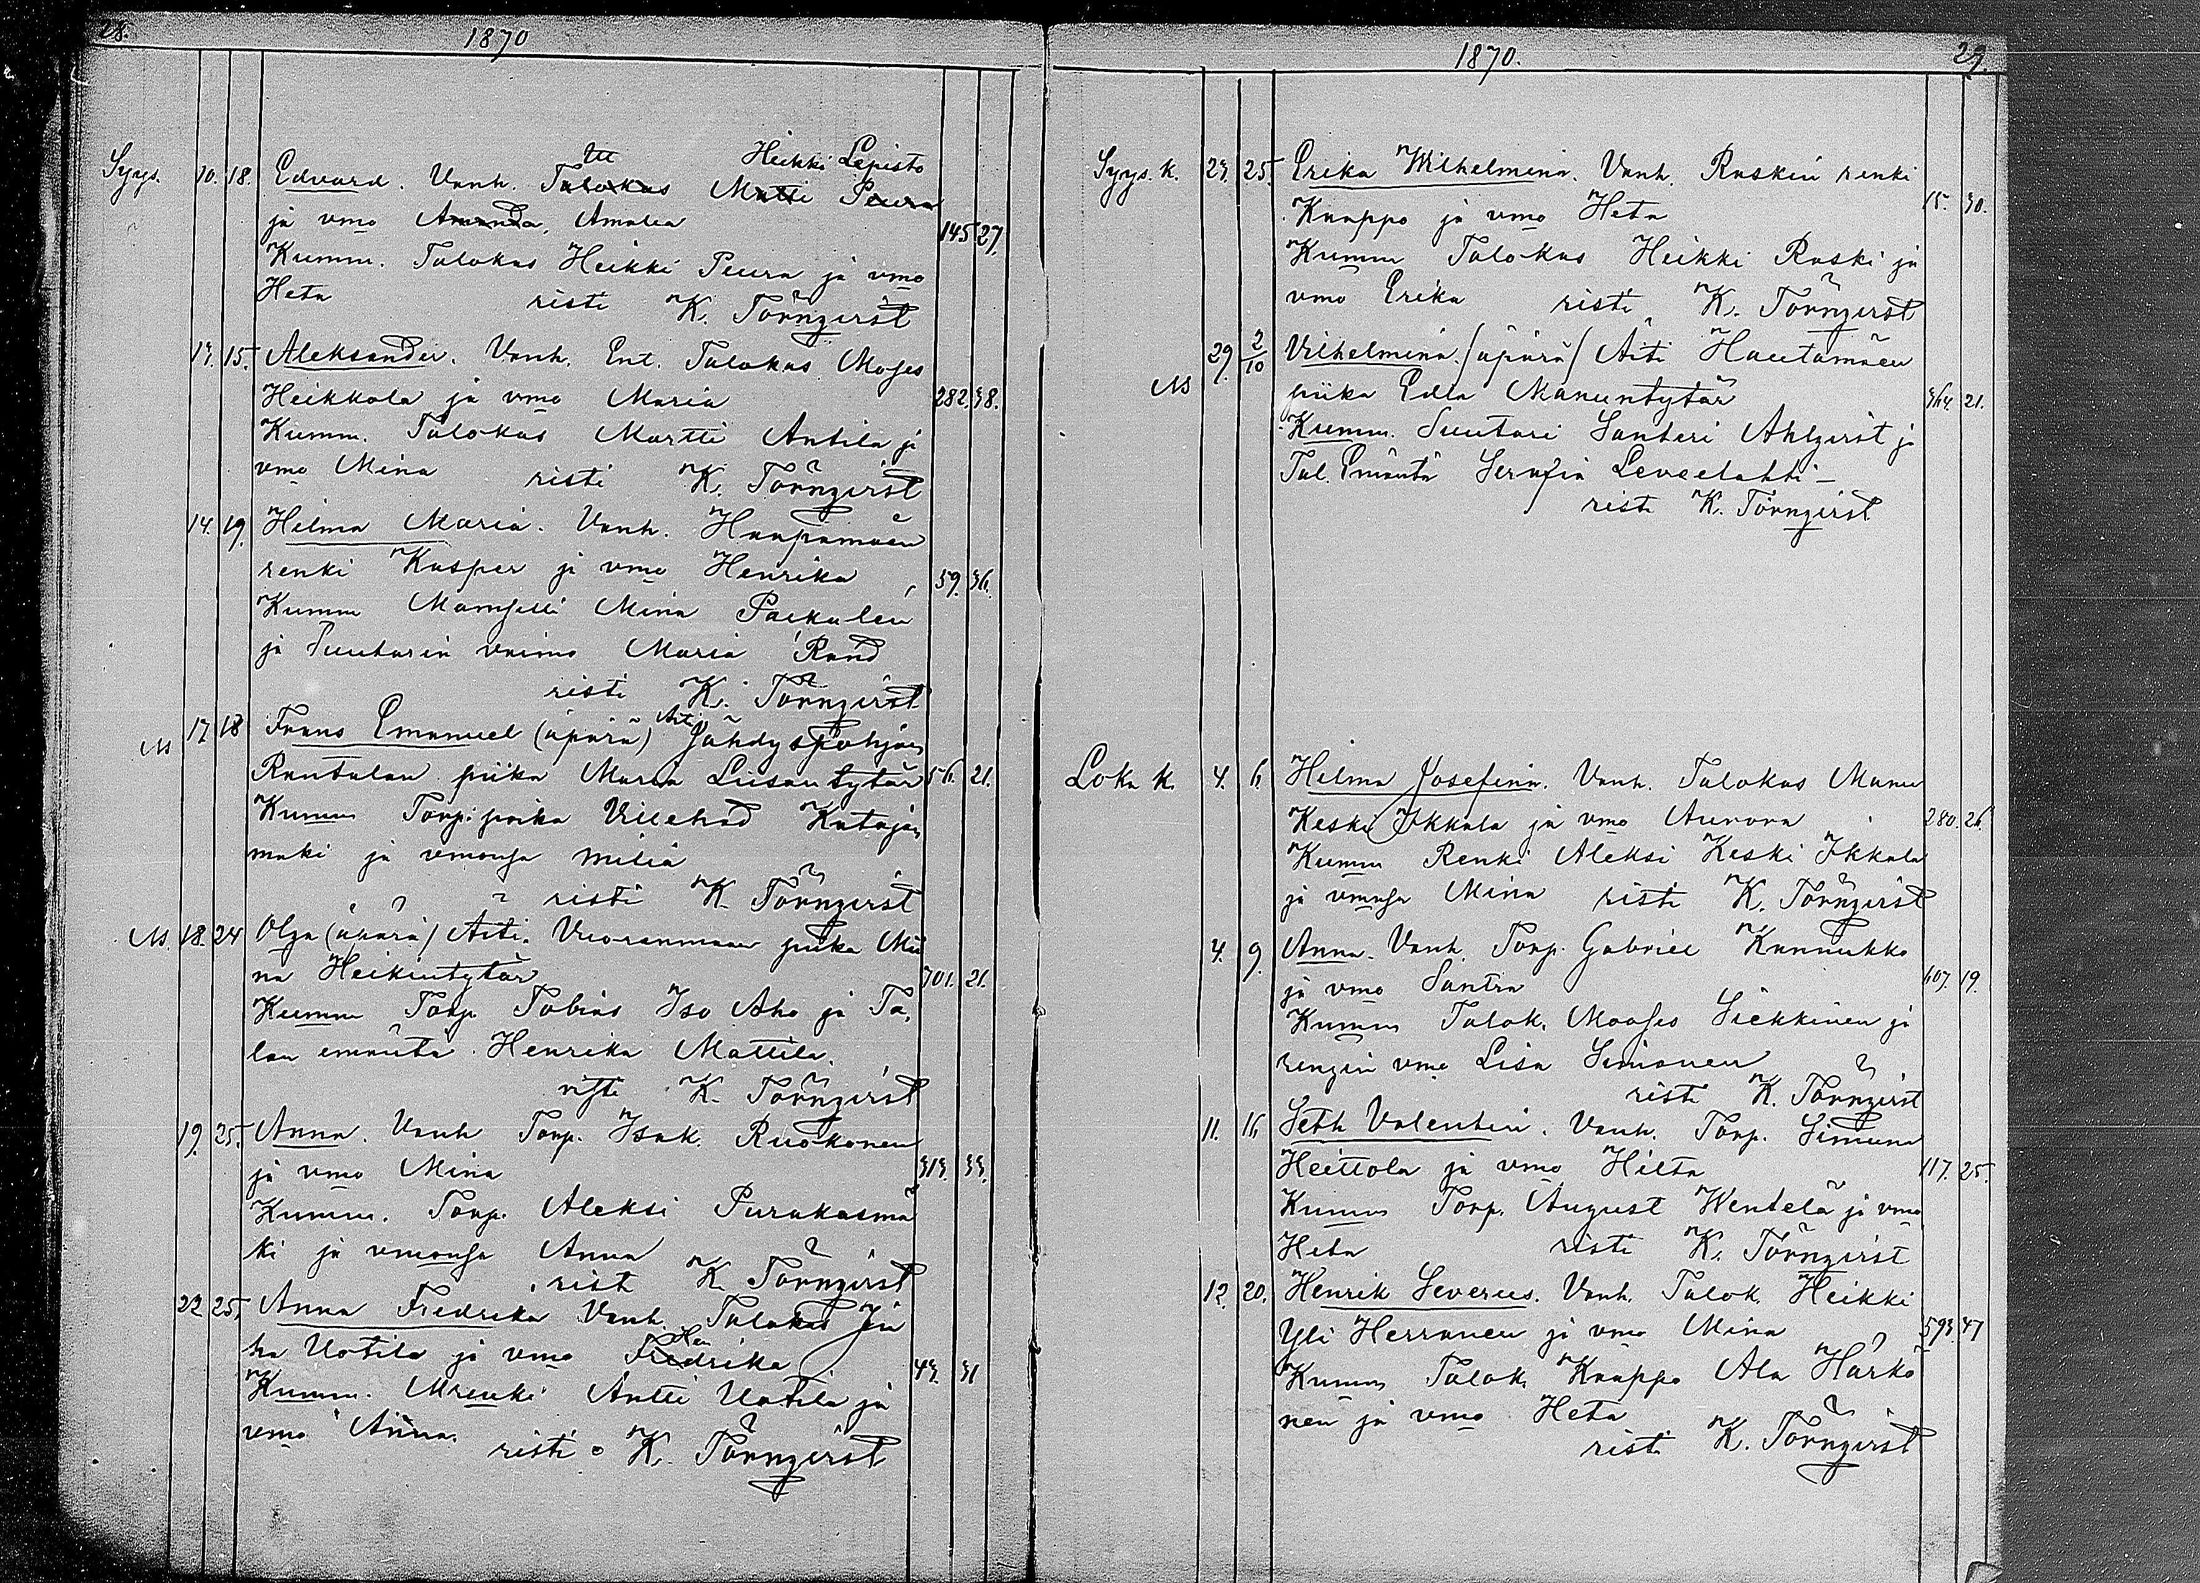 28.
1870
Syys. 10. 18. Edvard. Vanh. Talokas Matti Peura
Itl Heikki Lepistö
ja vmo Amanda, Amalia 145 27.
Kumm. Talokas Heikki Peura ja vmo
Heta risti K. Törnqvist
13. 15. Aleksander. Vanh. Ent. Talokas Moses
Heikkola ja vmo Maria 282. 38.
Kumm. Talokas Martti Antila ja
vmo Mina risti K. Törnqvist
14. 19. Hilma Maria. Vanh. Haapamäen
renki Kasper ja vmo Henrika 59. 36.
Kumm Mamselli Mina Paikalen
ja Suutarin vaimo Maria Rand
risti K. Törnqvist
Ns 17 18 Frans Emanuel (äpärä) Äiti Jähdyspohjan
Rantalan piika Maria Liisantytär 56. 21.
Kumm Torp. poika Vilehad Kataja,
mäki ja vmonsa Milia
risti K. Törnqvist
Ns. 18. 24 Olga (äpärä) Äiti. Vuorenmaan piika Mii
na Heikintytär 701. 21.
Kumm Torp. Tobias Iso Aho ja Ta,
lon emäntä Henrika Mattila.
risti K. Törnqvist
19. 25. Anna. Vanh Torp. Isak Ruokonen
ja vmo Mina 313. 33.
Kumm. Torp. Aleksi Purakasmä
ki ja vmonsa Anna
rist K. Törnqvist
22 25. Anna Fredrika Vanh. Talokas Ju
ha Uotila ja vmo Fredrika Hen 43. 31
Kumm. Mrenki Antti Uotila ja
vmo Anna. risti K. Törnqvist
1870.
29.
Syys. k. 23. 25. Erika Wilhelmina. Vanh. Raskin renki
Kaappo ja vmo Heta 15. 30.
Kumm Talokas Heikki Raski ja
vmo Erika risti K. Törnqvist
Ns 29. 2/10 Vilhelmina. (äpärä) Äiti Hautamäen
piika Edla Manuntytär 364. 21.
Kumm. Suutari Santeri Ahlqvist ja
Tal. Emäntä Serafia Leveelahti
risti K. Törnqvist
Loka k. 4. 6. Hilma Josefina. Vanh. Talokas Manu
Keski Ikkala ja vmo Aurora 280. 26.
Kumm Renki Aleksi Keski Ikkala
ja vmonsa Mina risti K. Törnqvist
4. 9. Anna. Vanh. Torp. Gabriel Kannukko
ja vmo Santra 607. 19.
Kumm Talok. Mooses Siekkinen ja
rengin vmo Lisa Simonen
risti K. Törnqvist
11. 16 Seth Valentin. Vanh. Torp. Simuna
Heittola ja vmo Hilta 117. 25.
Kumm Torp. August Wentelä ja vmo
Heta risti K. Törnqvist
12. 20. Henrik Severus. Vanh. Talok. Heikki
Yli Herranen ja vmo Mina 593. 47
Kumm Talok. Kaappo Ala Härkö
nen ja vmo Heta
risti K. Törnqvist